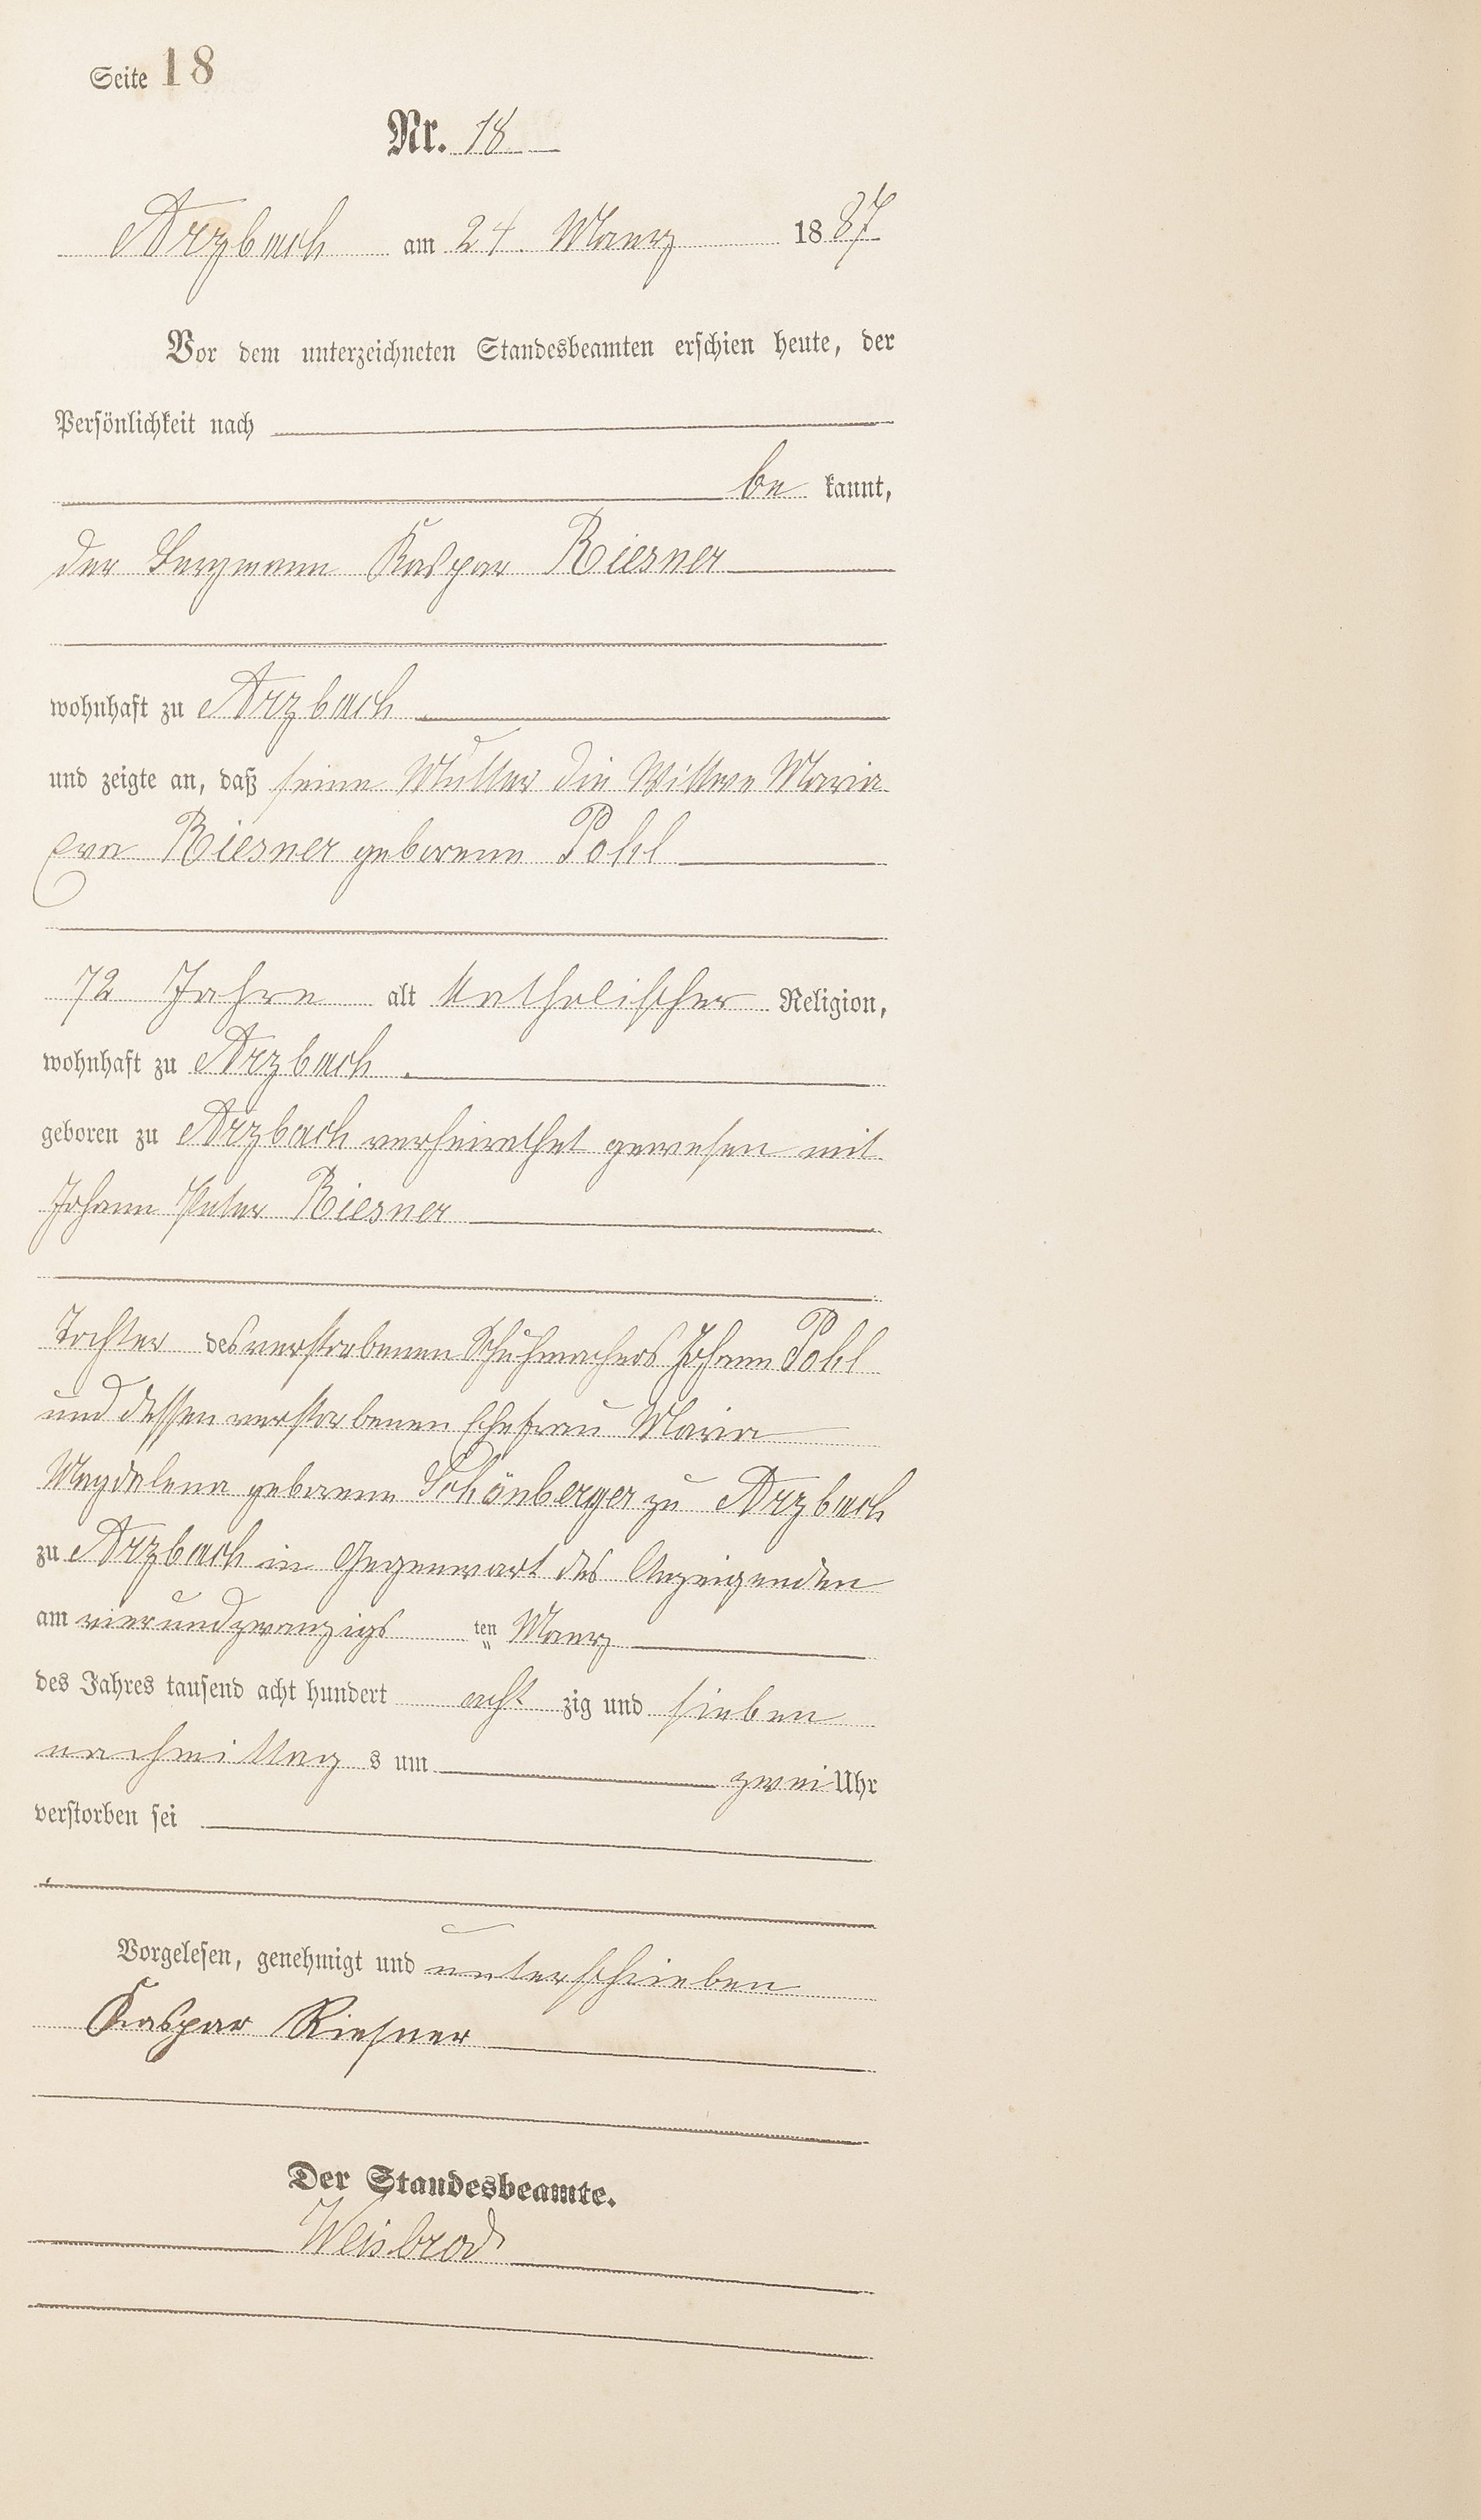 Seite 18
Nr. 18
Arzbach am 24. Maerz 1887
Vor dem unterzeichneten Standesbeamten erschien heute, der
Persönlichkeit nach
be kannt,
der Bergmann Kaspar Riesner
wohnhaft zu Arzbach
und zeigte an, daß seine Mutter die Wittwe Maria
Eva Riesner geborene Pohl
72 Jahre alt katholischer Religion,
wohnhaft zu Arzbach
geboren zu Arzbach verheirathet gewesen mit
Johann Peter Riesner
Tochter des verstorbenen Schuhmachers Johann Pohl
und dessen verstorbenen Ehefrau Maria
Magdalena geborene Schönberger zu Arzbach
zu Arzbach in Gegenwart des Anzeigenden
am vierundzwanzigs ten Maerz
des Jahres tausend acht hundert acht zig und sieben
nachmittag s um zwei Uhr
verstorben sei
Vorgelesen, genehmigt und unterschrieben
Kaspar Riesner
Der Standesbeamte.
Weisbrod